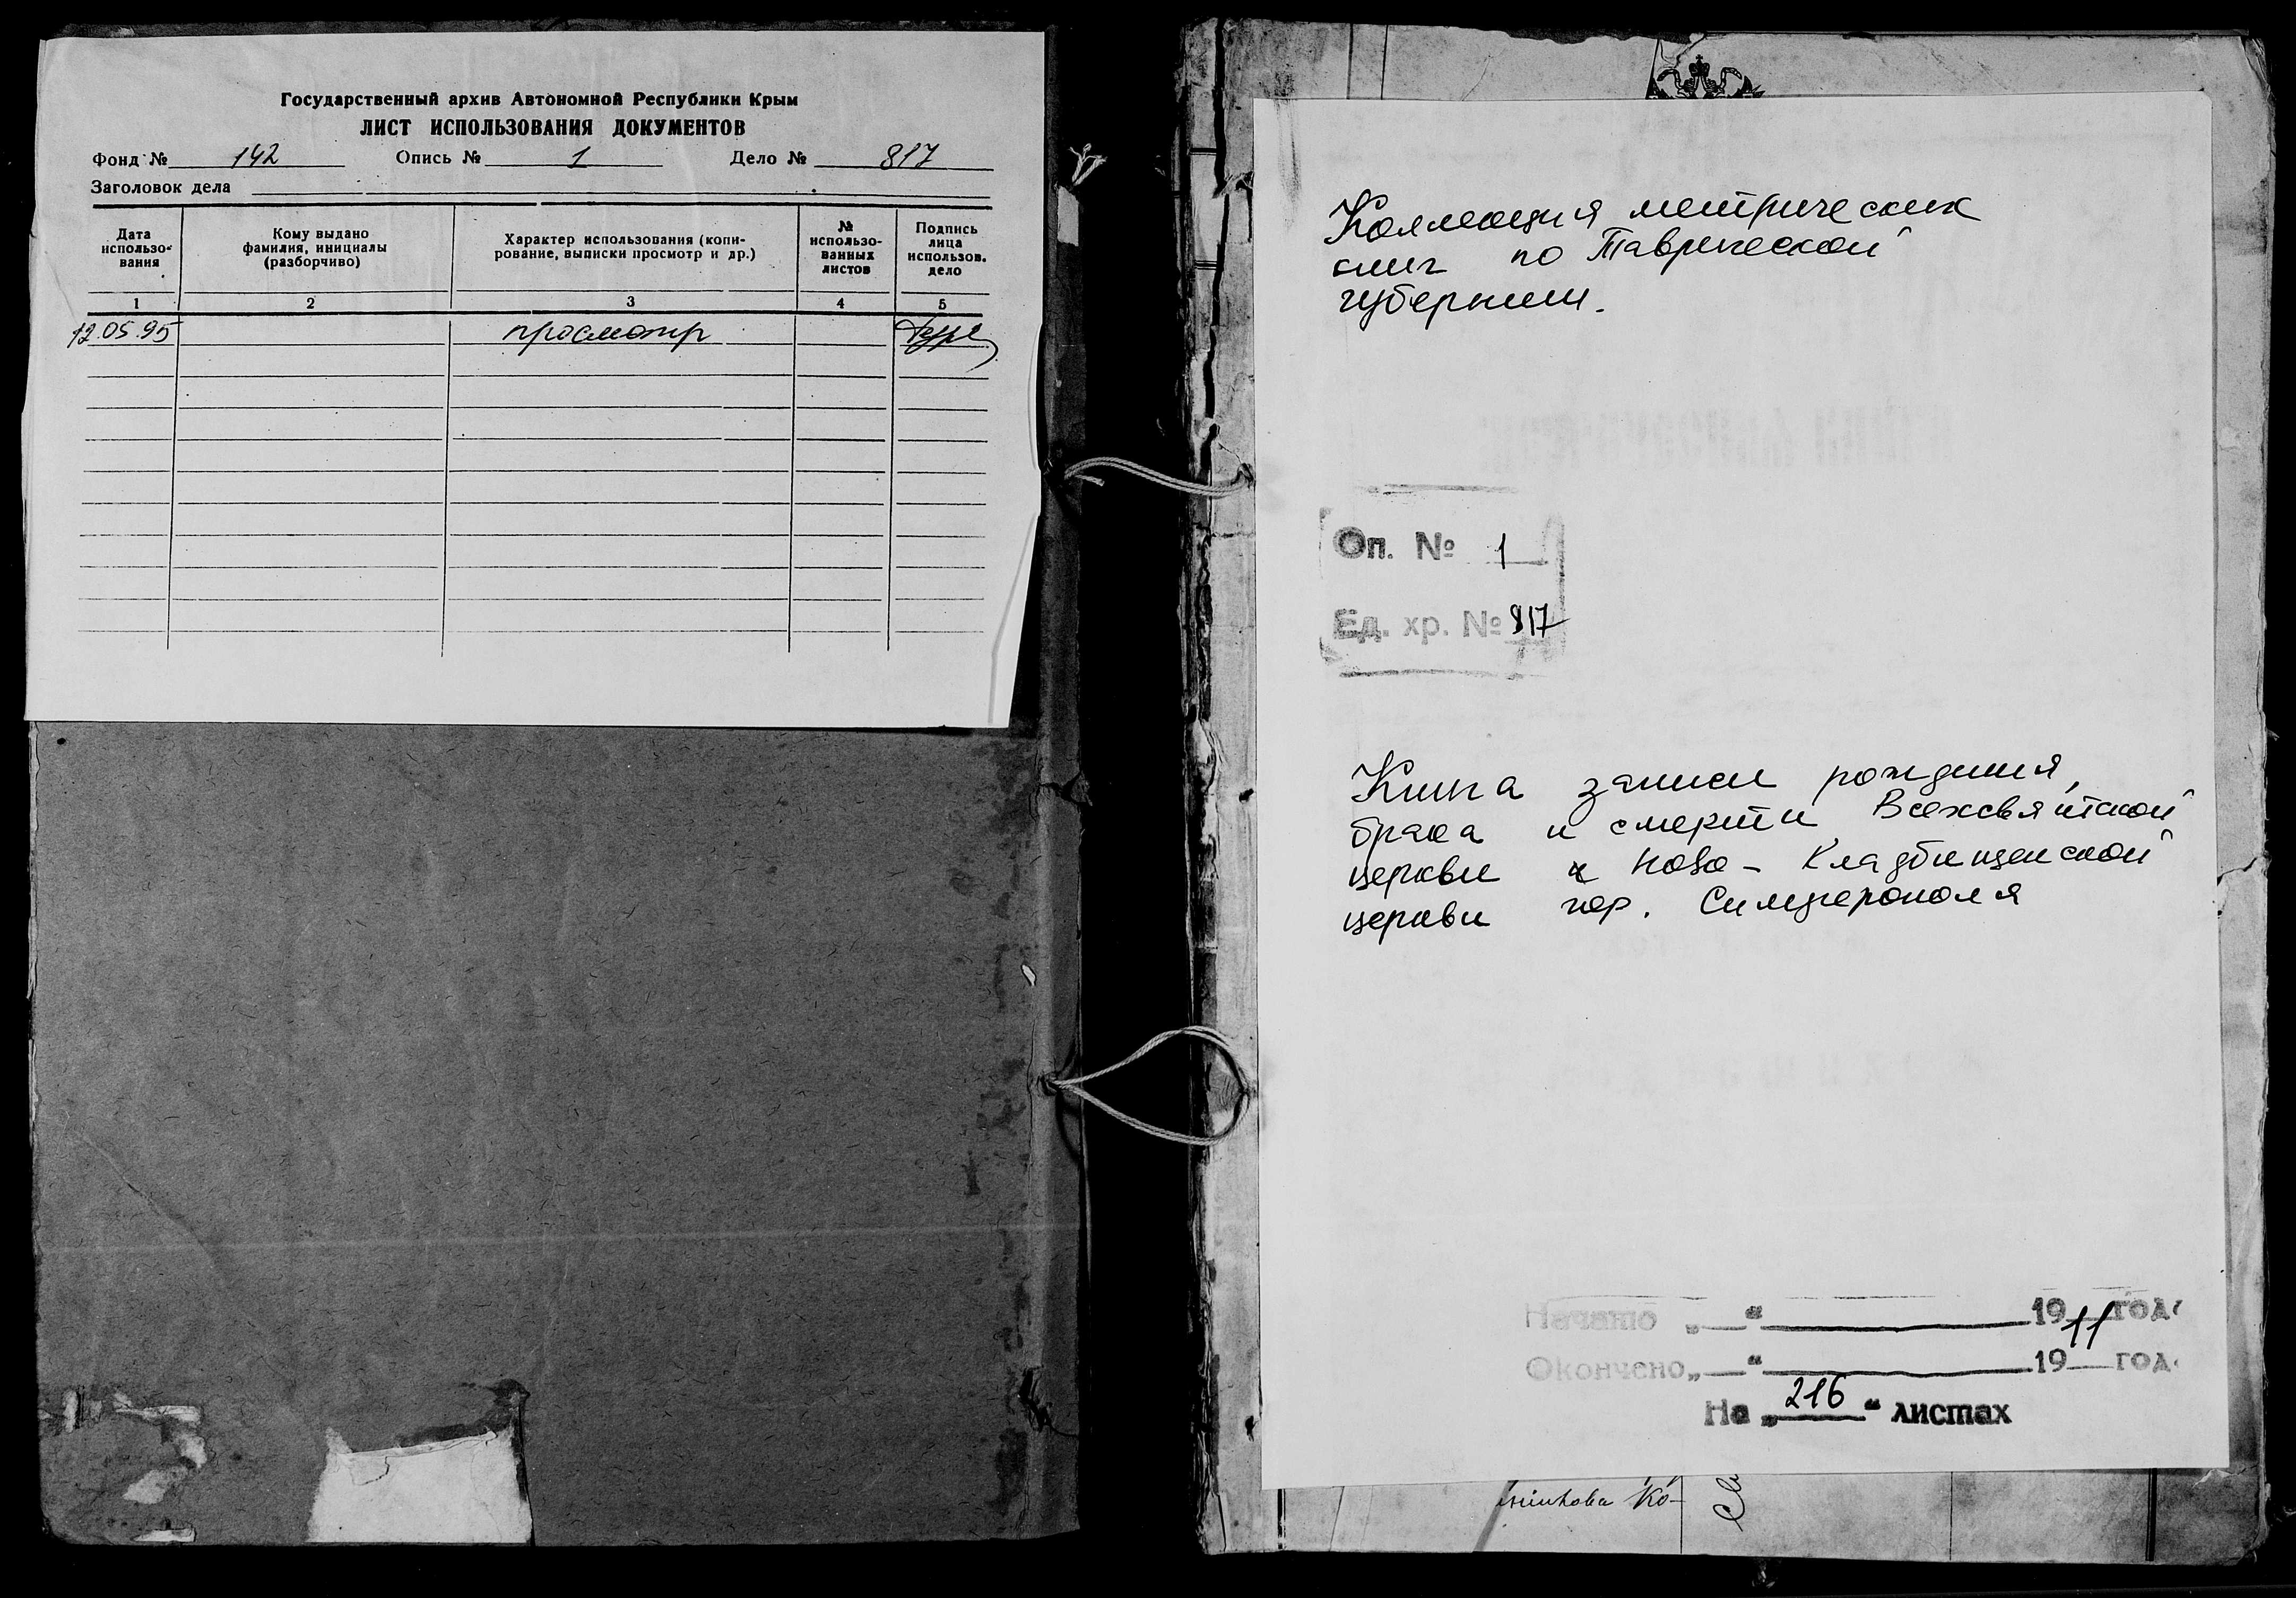 Государственный архив Автономной Республики Крым
ЛИСТ ИСПОЛЬЗОВАНИЯ ДОКУМЕНТОВ
Фонд № 142 Опись № 1 Дело № 817
Заголовок дела
Дата использо-вания
Кому выдано фамилия, инициалы (разборчиво)
Характер использования (копи-рование, выписки просмотр и др.)
№ использо-ванных листов
Подпись лица использов. дело
1 2 3 4 5
12.05.95 просмотр
Коллекция метрических
книг по Таврической
губернии.
Оп. № 1
Ед. хр. № 817
Книга записи рождения,
брака и смерти Всехсвятской
церкви и Ново-Кладбищенской
церкви гор. Симферополя
Начато „ “ 1911 год
Окончено „ “ 19 год
На „216“ листах